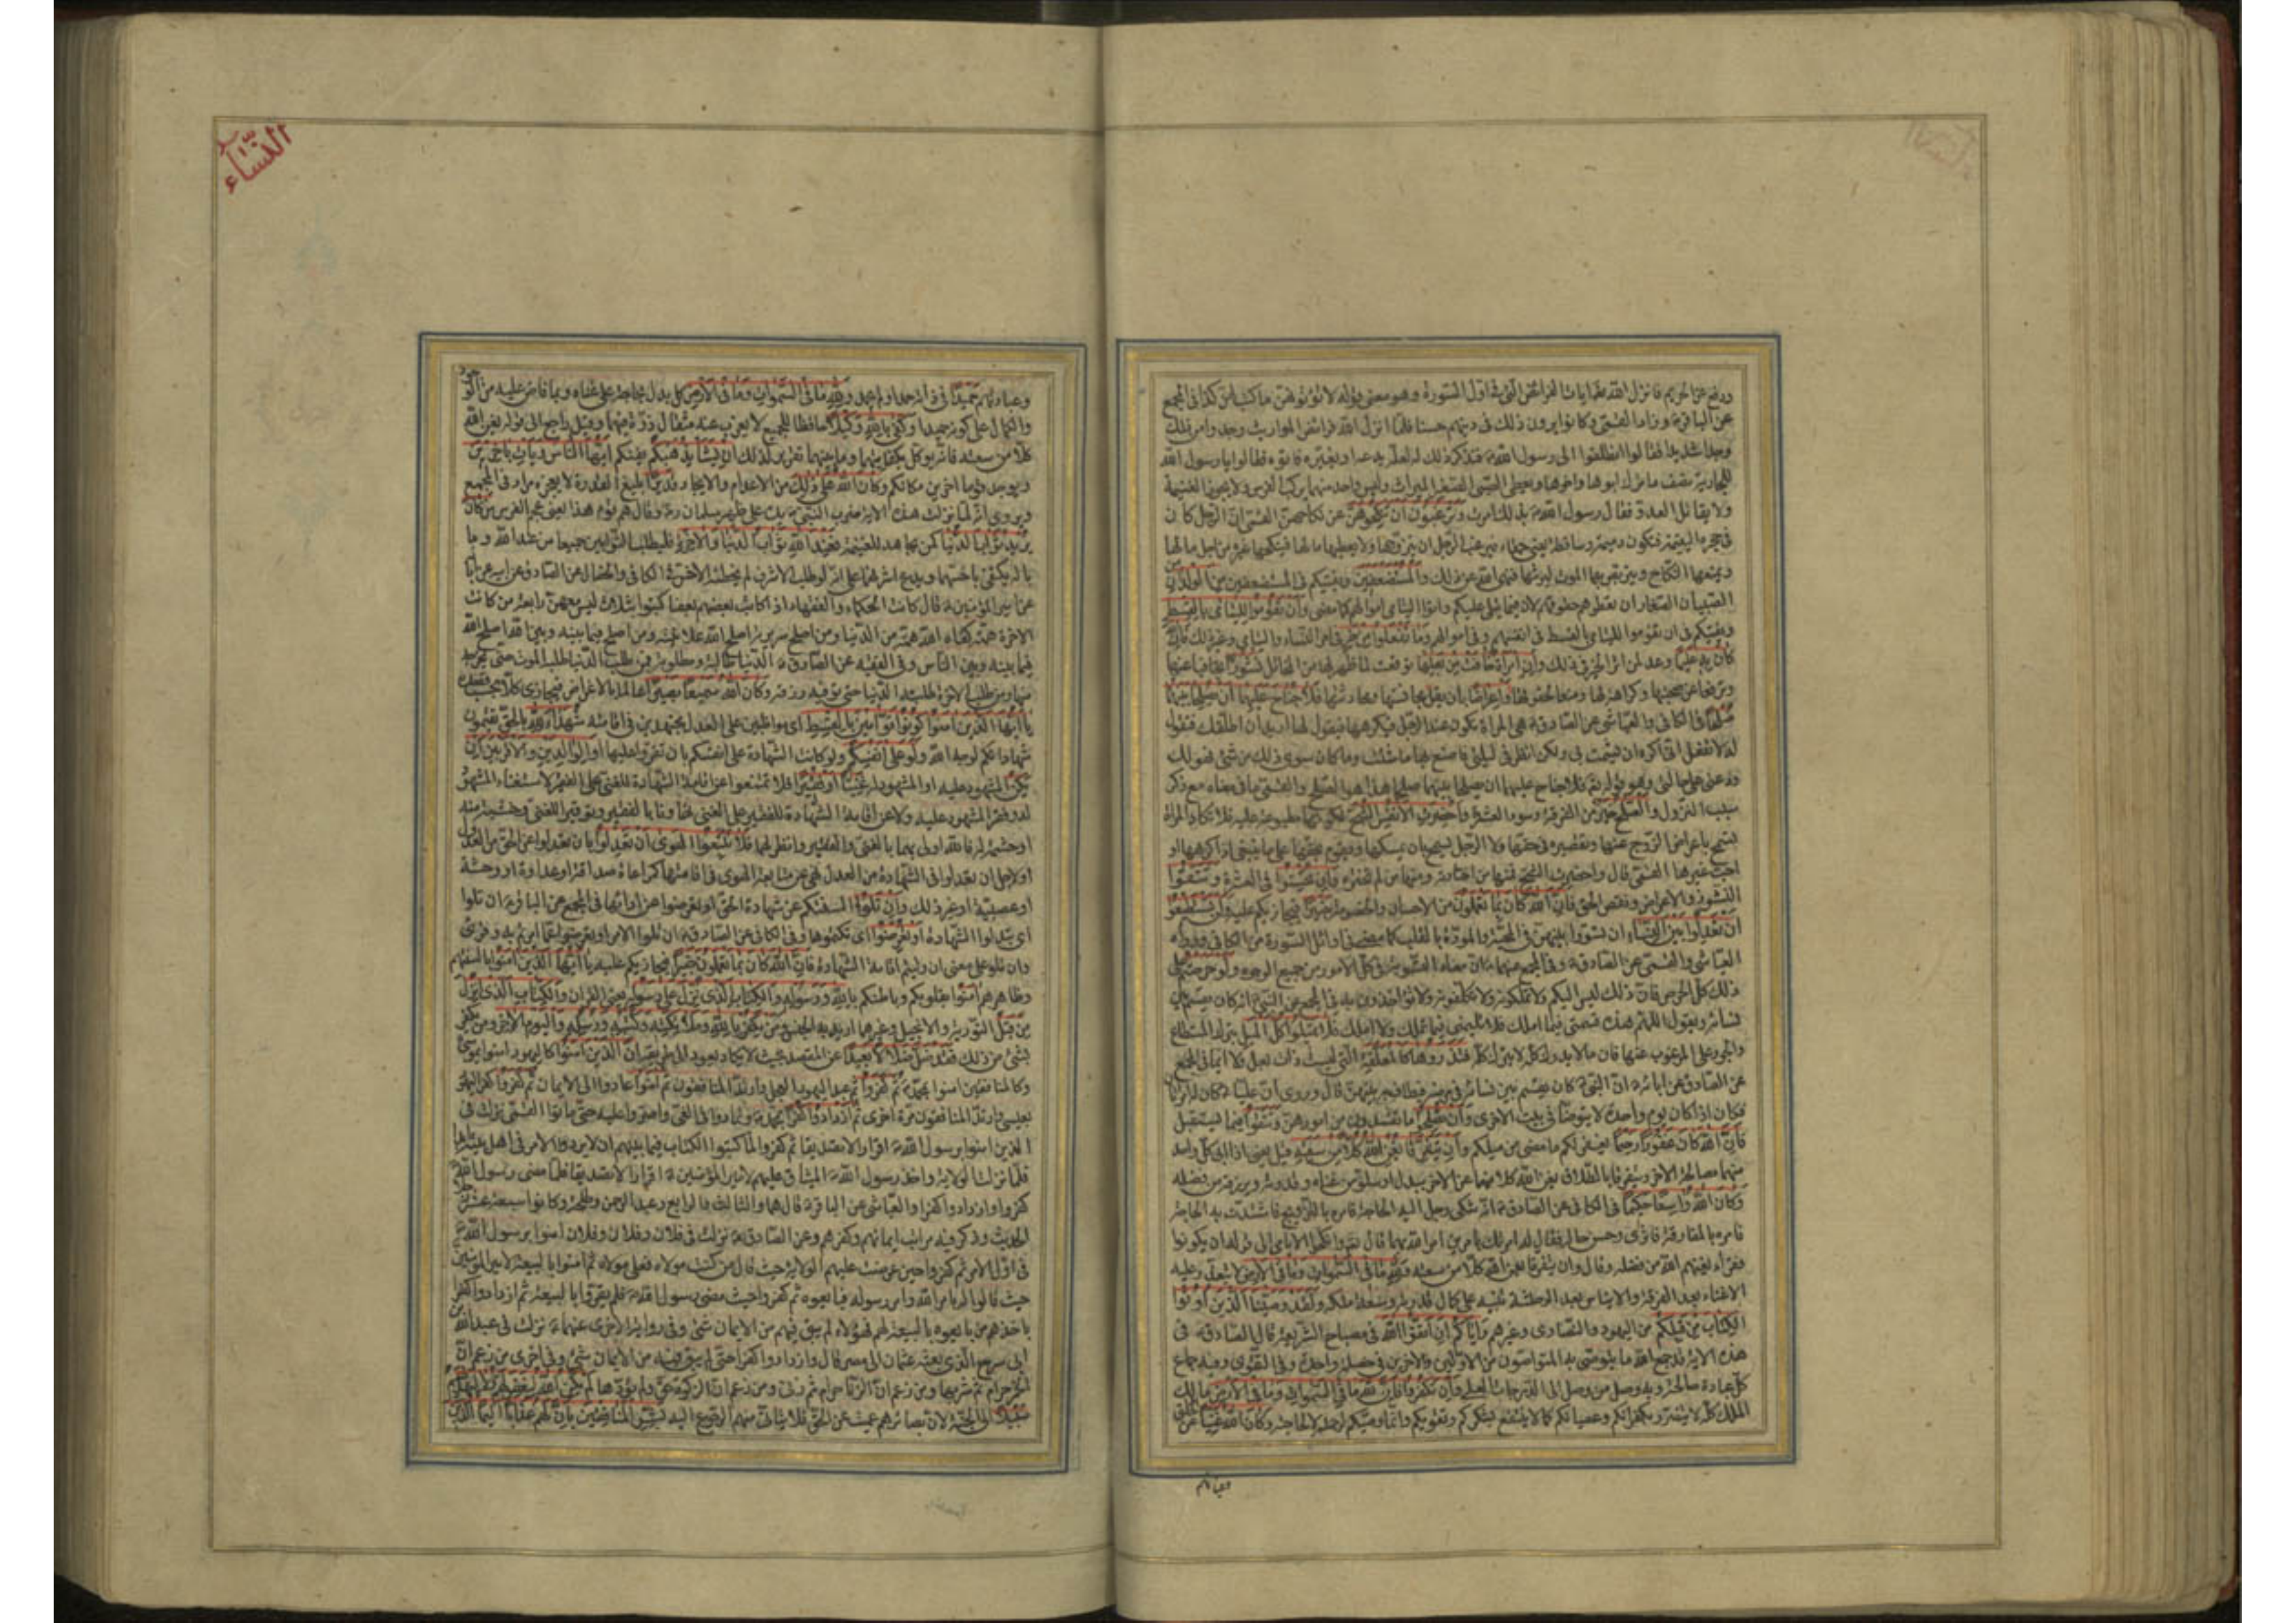 ورفع عن آخرهم فانزل الله هذه ايات الفرائض التي في اول السورة وهو معنى قوله لا تؤتونهن ما كتب لهن كذا في المجمع
عن الباقر وزاد القمي وكانوا يرون ذلك في دينهم حسنا فلما انزل الله فرائض المواريث وجدوا من ذلك
وجدا شديدا فقالوا انطلقوا الى رسول الله فنذكر ذلك له لعله يدعه او يغيره فاتوه فقالوا يا رسول الله
للجارية نصف ما ترك ابوها واخوها ويعطى الصبي الصغير الميراث وليس واحد منهما يركب الفرس ولا يحوز الغنيمة
ولا يقاتل العدو فقال رسول الله بذلك امرت وترغبون ان تنكحوهن عن نكاحهن القمي ان الرجل كان
في حجره اليتيمة فتكون دميمة وساقطة يعني حمقاء فيرغب الرجل ان يتزوجها ولا يعطيها مالها فينكحها غيره من اجل مالها
ويمنعها النكاح ويتربص بها الموت ليرثها فنهى الله عن ذلك والمستضعفين ويفتيكم في المستضعفين من الولدان
الصبيان الصغار ان تعطوهم حقوقهم لان فيما يتلى عليكم واتوا اليتامى اموالهم كما مضى وان تقوموا لليتامى بالقسط
ويفتيكم في ان تقوموا لليتامى بالقسط في انفسهم وفي اموالهم وما تفعلوا من خير في امر النساء واليتامى وغير ذلك فان الله
كان به عليما وعد لمن اثر الخير في ذلك وان امراة خافت من بعلها توقعت لما ظهر لها من المخائل نشوزا تجافيا عنها
وترفعا عن صحبتها وكراهة لها ومنعا لحقوقها او اعراضا بان يقل مجالستها ومحادثتها فلا جناح عليهما ان يصلحا بينهما
صلحا في الكافي والعياشي عن الصادق هي المراة تكون عند الرجل فيكرهها فيقول لها اريد ان اطلقك فتقول
له لا تفعل اني اكره ان يشمت بي ولكن انظر في ليلتي فاصنع بها ما شئت وما كان سوى ذلك من شئ فهو لك
ودعني على حالتي وهو قوله تع فلا جناح عليهما ان يصلحا بينهما صلحا هذا هو الصلح والقمي ما في معناه مع ذكر
سبب النزول والصلح خير من الفرقة وسوء العشرة واحضرت الانفس الشح لكونها مطبوعة عليه فلا تكاد المراة
تسمح باعراض الزوج عنها وتقصيره في حقها ولا الرجل يسمح بان يمسكها ويقوم بحقها على ما ينبغي اذا كرهها او
احب غيرها القمي قال واحضرت الشح فمنها من اختارته ومنها من لم تختره وان تحسنوا في العشرة وتتقوا
النشوز والاعراض ونقص الحق فان الله كان بما تعملون من الاحسان والخصومة خبيرا فيجازيكم عليه ولن تستطيعوا
ان تعدلوا بين النساء ان تسووا بينهن في المحبة والمودة بالقلب كما مضى في اوائل السورة من الكافي ورواه
العياشي والقمي عن الصادق وفي المجمع عنهما ان معناه التسوية في كل الامور من جميع الوجوه ولو حرصتم على
ذلك كل الحرص فان ذلك ليس اليكم ولا تملكونه ولا تكلفونه ولا تؤاخذون به في المجمع عن النبي انه كان يقسم بين
نسائه ويقول اللهم هذه قسمتي فيما املك فلا تلمني فيما تملك ولا املك فلا تميلوا كل الميل بترك المستطاع
والجور على المرغوب عنها فان ما لا يدرك كله لا يترك كله فتذروها كالمعلقة التي ليست ذات بعل ولا ايما في المجمع
عن الصادق عن ابائه ان النبي كان يقسم بين نسائه في مرضه فيطاف به بينهن قال وروى ان عليا كان له امراتان
فكان اذا كان يوم واحدة لا يتوضأ في بيت الاخرى وان تصلحوا ما تفسدون من امورهن وتتقوا فيما يستقبل
فان الله كان غفورا رحيما يغفر لكم ما مضى من ميلكم وان يتفرقا يغن الله كلا من سعته قيل يعني اذا ابى كل واحد
منهما مصالحة الاخر ويتفرقا بالطلاق يغن الله كلا منهما عن الاخر ببدل او سلو من غناه وقدرته ويرزقه من فضله
وكان الله واسعا حكيما في الكافي عن الصادق انه شكى رجل اليه الحاجة فامره بالتزويج فاشتدت به الحاجة
فامره بالمفارقة فاثرى وحسن حاله فقال له امرتك بامرين امر الله بهما قال تع وانكحوا الايامى الى قوله ان يكونوا
فقراء يغنهم الله من فضله وقال وان يتفرقا يغن الله كلا من سعته ولله ما في السموات وما في الارض لا يتعذر عليه
الاغناء بعد الفرقة والايناس بعد الوحشة تنبيه على كمال قدرته وسعة ملكه ولقد وصينا الذين اوتوا
الكتاب من قبلكم من اليهود والنصارى وغيرهم واياكم ان اتقوا الله في مصباح الشريعة قال الصادق في
هذه الاية قد جمع الله ما يتواصى به المتواصون من الاولين والاخرين في خصلة واحدة وهي التقوى وفيه جماع
كل عبادة صالحة وبه وصل من وصل الى الدرجات العلى وان تكفروا فان لله ما في السموات وما في الارض مالك
الملك كله لا يتضرر بكفرانكم وعصيانكم كما لا ينتفع بشكركم وتقويكم وانما وصيكم لرحمته لا لحاجته وكان الله غنيا عن الخلق
وعبادتهم
النساء
وعبادتهم حميدا في ذاته حمد او لم يحمد ولله ما في السموات وما في الارض كل يدل بحاجته على غناه وبما فاض عليه من الوجود
والكمال على كونه حميدا وكفى بالله وكيلا حافظا للجميع لا يعزب عنه مثقال ذرة فيهما وقيل راجع الى قوله يغن الله
كلا من سعته فانه توكل بكفايتهما وما بينهما تقرير لذلك ان يشا يذهبكم يفنكم ايها الناس ويات باخرين
ويوجد قوما اخرين مكانكم وكان الله على ذلك من الاعدام والايجاد قديرا بليغ القدرة لا يعجزه مراد في المجمع
ويروى انه لما نزلت هذه الاية ضرب النبي يده على ظهر سلمان ره وقال هم قوم هذا يعني عجم الفرس من كان
يريد ثواب الدنيا كمن يجاهد للغنيمة فعند الله ثواب الدنيا والاخرة فليطلب الثوابين جميعا من عند الله وما
باله يكتفي باخسهما ويدع اشرفهما على انه لو طلب الاشرف لم يخطئه الاخس في الكافي والخصال عن الصادق عن ابيه عن ابائه
عن امير المؤمنين قال كانت الحكماء والفقهاء اذا كاتب بعضهم بعضا كتبوا بثلاث ليس معهن رابعة من كانت
الاخرة همته كفاه الله همته من الدنيا ومن اصلح سريرته اصلح الله علانيته ومن اصلح فيما بينه وبين الله اصلح الله
فيما بينه وبين الناس وفي الفقيه عن الصادق الدنيا طالبة ومطلوبة فمن طلب الدنيا طلبه الموت حتى يخرجه
منها ومن طلب الاخرة طلبته الدنيا حتى توفيه رزقه وكان الله سميعا بصيرا عالما بالاغراض فيجازي كلا بحسب قصده
يا ايها الذين امنوا كونوا قوامين بالقسط اي مواظبين على العدل مجتهدين في اقامته شهداء لله بالحق تقيمون
شهاداتكم لوجه الله ولو على انفسكم ولو كانت الشهادة على انفسكم بان تقروا عليها او الوالدين والاقربين ان
يكن المشهود عليه او المشهود له غنيا او فقيرا فلا تمتنعوا عن اقامة الشهادة للغني على الفقير لاستغناء المشهود
له وفقر المشهود عليه ولا عن اقامة الشهادة للفقير على الغني تهاونا بالفقير وتوقيرا للغني وخشية منه
او حشمة له فالله اولى بهما بالغني والفقير وانظر لهما فلا تتبعوا الهوى ان تعدلوا بان تعدلوا عن الحق من العدول
او لاجل ان تعدلوا في الشهادة من العدل نهى عن متابعة الهوى في اقامتها كمراعاة صداقة او عداوة او وحشة
او عصبية او غير ذلك وان تلووا السنتكم عن شهادة الحق او تعرضوا عن ادائها في المجمع عن الباقر ان تلووا
اي تبدلوا الشهادة او تعرضوا اي تكتموها وفي الكافي عن الصادق ان تلووا الامر او تعرضوا عما امرتم به وقرئ
وان تلوا على معنى ان وليتم اقامة الشهادة فان الله كان بما تعملون خبيرا فيجازيكم عليه يا ايها الذين امنوا بالسنتهم
وظاهرهم امنوا بقلوبكم وباطنكم بالله ورسوله والكتاب الذي نزل على رسوله يعني القران والكتاب الذي انزل
من قبل التورية والانجيل وغيرهما اريد به الجنس ومن يكفر بالله وملائكته وكتبه ورسله واليوم الاخر ومن يكفر
بشئ من ذلك فقد ضل ضلالا بعيدا عن المقصد بحيث لا يكاد يعود الى طريقه ان الذين امنوا كاليهود امنوا بموسى
وكالمنافقين امنوا بمحمد ثم كفروا ثم عبد اليهود العجل وارتد المنافقون ثم امنوا عادوا الى الايمان ثم كفروا كفر اليهود
بعيسى وارتد المنافقون مرة اخرى ثم ازدادوا كفرا بمحمد وتمادوا في الغي واصروا عليه حتى ماتوا القمي نزلت في
الذين امنوا برسول الله اقرارا لا تصديقا ثم كفروا لما كتبوا الكتاب فيما بينهم ان لا يردوا الامر في اهل بيته ابدا
فلما نزلت الولاية واخذ رسول الله الميثاق عليهم لامير المؤمنين اقرارا لا تصديقا فلما مضى رسول الله
كفروا وازدادوا كفرا والعياشي عن الباقر قال هما والثالث والرابع وعبد الرحمن وطلحة وكانوا سبعة عشر رجلا
الحديث وذكر فيه مراتب ايمانهم وكفرهم وعن الصادق نزلت في فلان وفلان وفلان امنوا برسول الله
في اول الامر ثم كفروا حين عرضت عليهم الولاية حيث قال من كنت مولاه فعلي مولاه ثم امنوا بالبيعة لامير المؤمنين
حيث قالوا له بامر الله وامر رسوله فبايعوه ثم كفروا حيث مضى رسول الله فلم يقروا بالبيعة ثم ازدادوا كفرا
باخذهم من بايعوه بالبيعة لهم فهؤلاء لم يبق فيهم من الايمان شئ وفي رواية اخرى عنهما نزلت في عبد الله بن
ابي سرح الذي بعثه عثمان الى مصر قال وازدادوا كفرا حتى لم يبق فيه من الايمان شئ وفي اخرى من زعم ان
الخمر حرام ثم شربها ومن زعم ان الزنا حرام ثم زنى ومن زعم ان الزكوة حق ولم يؤدها لم يكن الله ليغفر لهم ولا ليهديهم
سبيلا الى الجنة لان بصائرهم عميت عن الحق فلا يتاتى منهم الرجوع اليه بشر المنافقين بان لهم عذابا اليما الذين